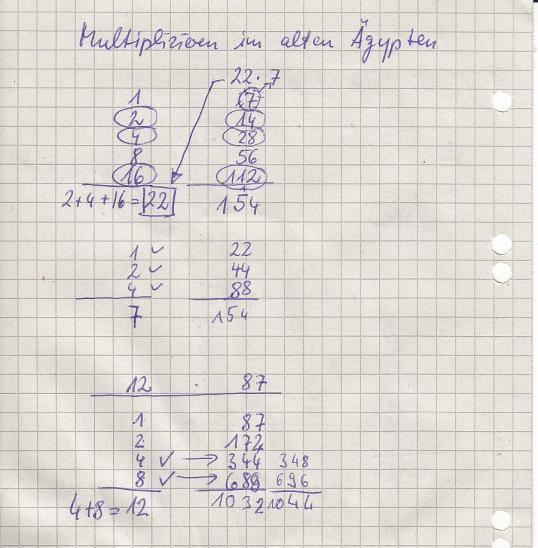 Multiplizieren im alten Ägypten
22 · 7
1 7
2 14
4 28
8 56
16 112
2+4+16=22 154
1 ✓ 22
2 ✓ 44
4 ✓ 88
7 154
12 · 87
1 87
2 172
4 ✓ → 344 348
8 ✓ → 689 696
4+8=12 1032 1044